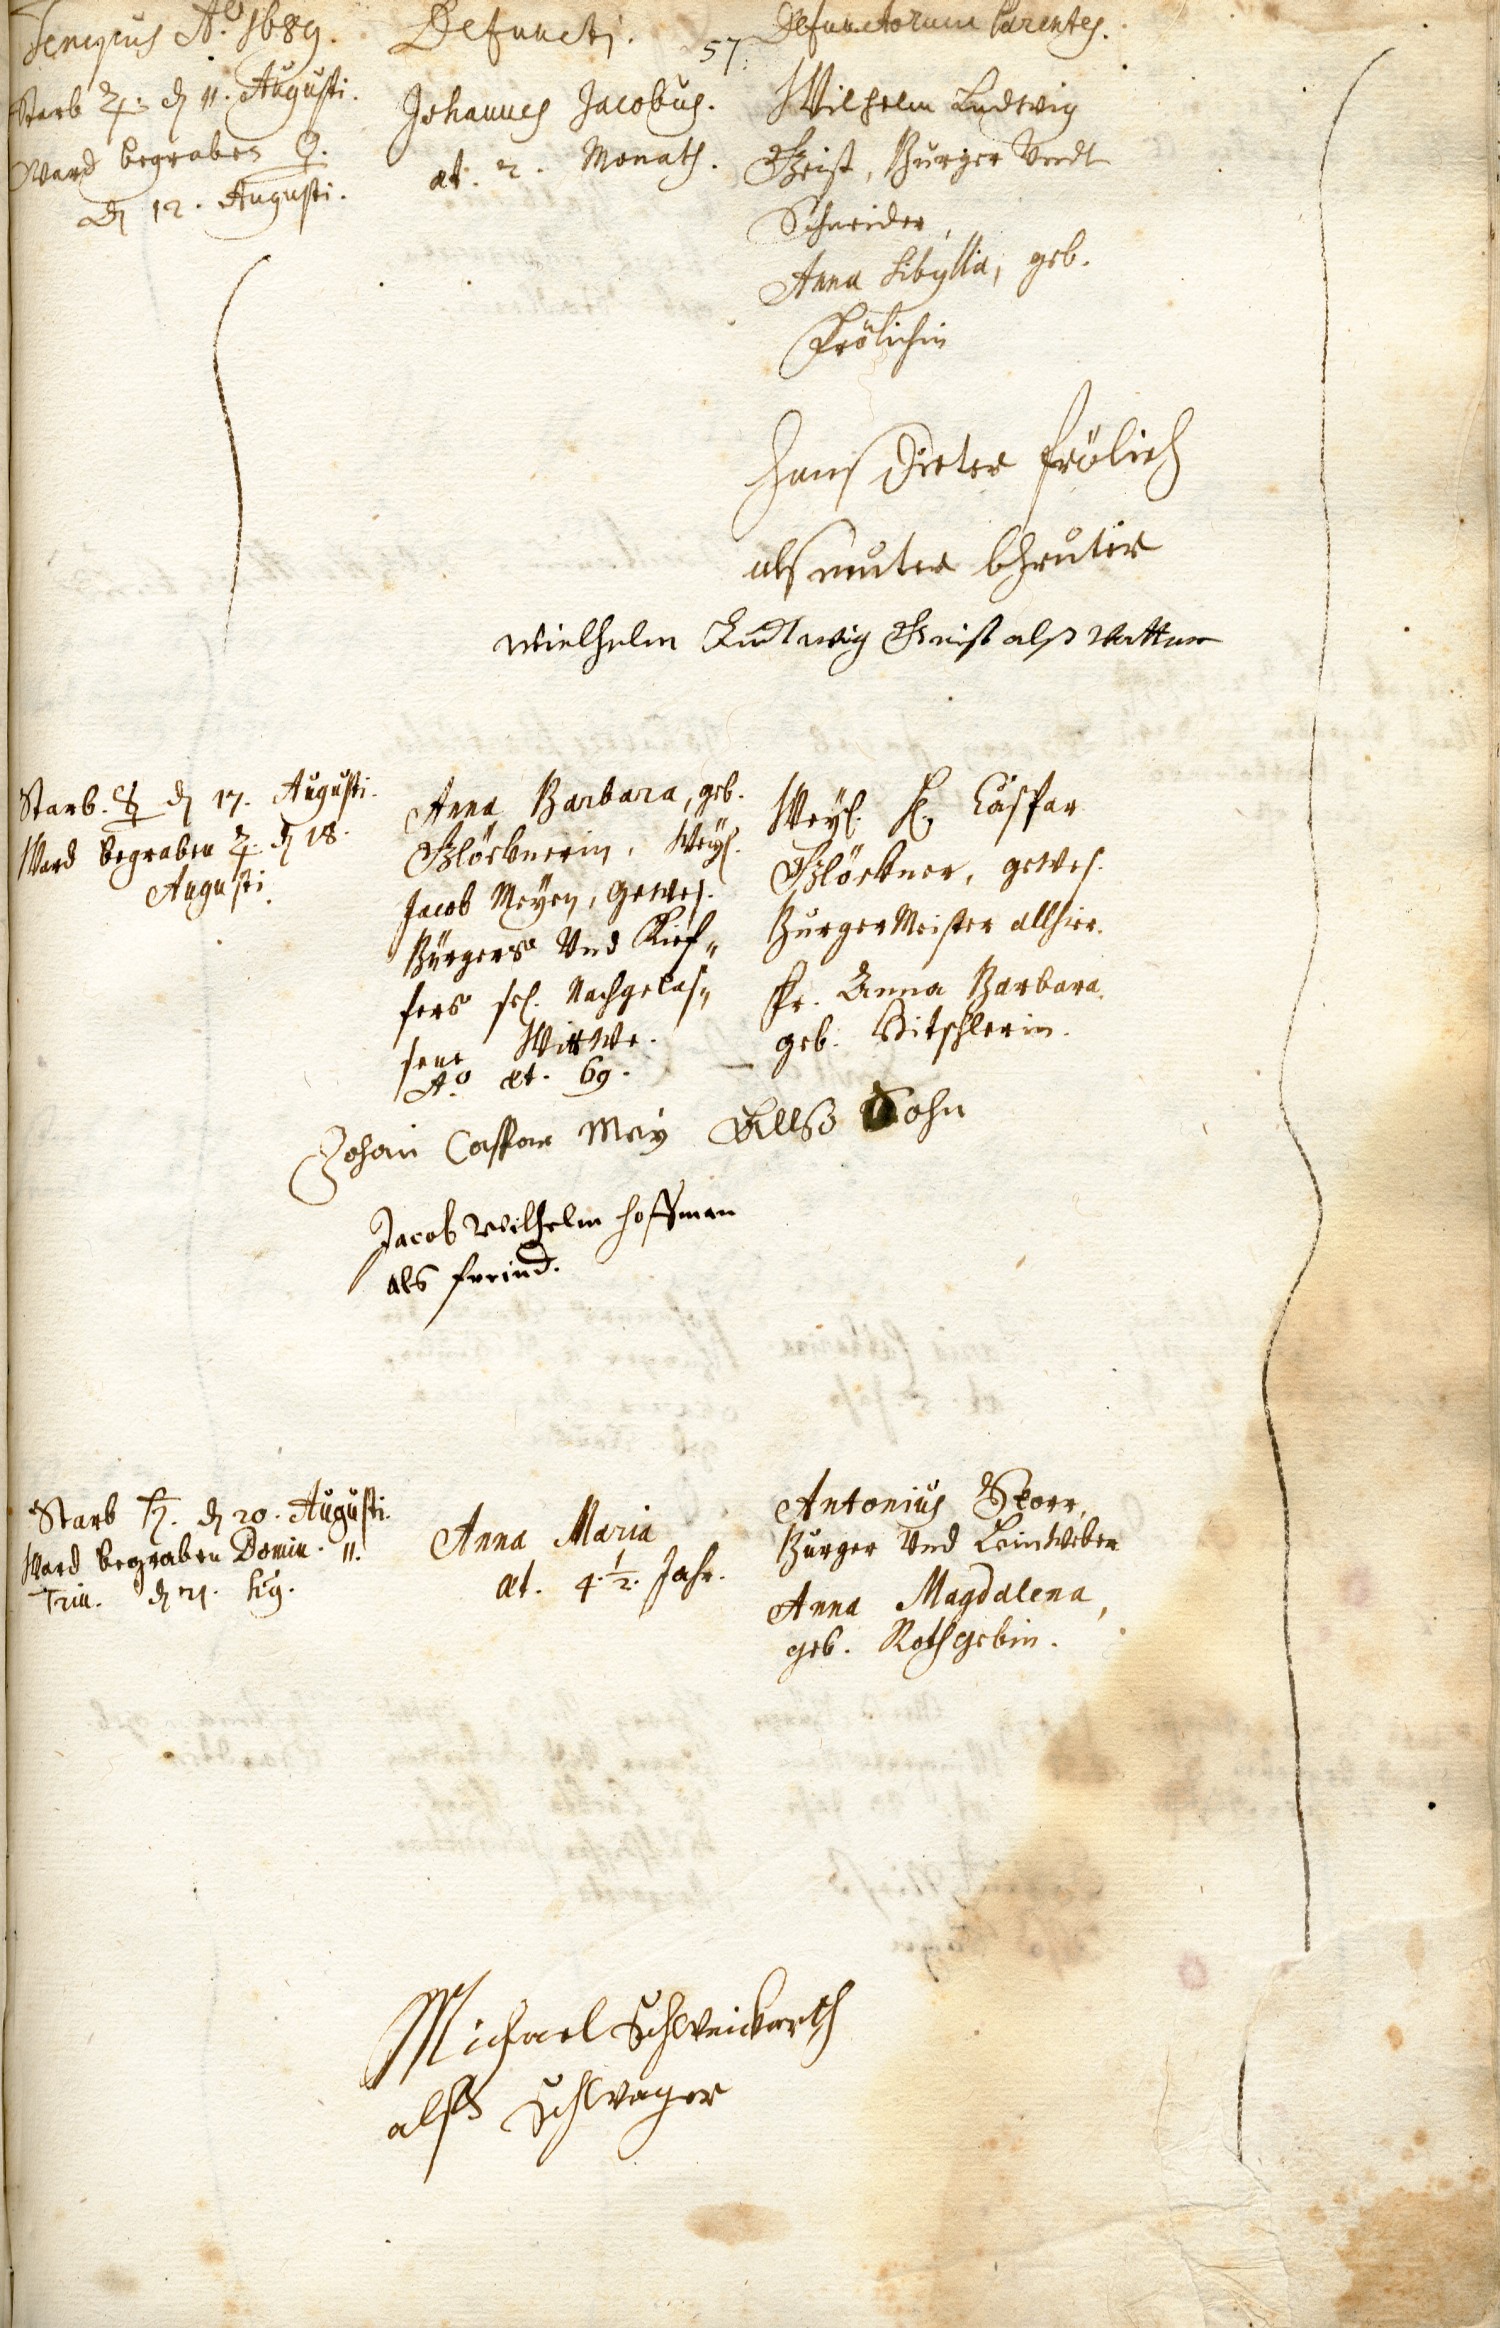 Tempus Aº. 1689.
Defuncti.
57.
Defunctorum Parentes.
Starb ♃. d. 11. Augusti.
Ward begraben ♀.
d. 12. Augusti.
Johannes Jacobus.
æt. 2. Monath.
Wilhelm Ludwig
Geist, Burger Undt
Schneider,
Anna Sibylla, geb.
Frölichin
Hans Dieter Frölich
als muter bruter
Wielhelm Ludtwig Geist alß Vatter
Starb. ☿ d. 17. Augusti.
Ward begraben ♃. d. 18.
Augusti.
Anna Barbara, geb.
Glöcknerin, Weyl.
Jacob Meyen, Gewes.
Bürgers Und Kief„
fers sel. Nachgelas„
sene Wittwe.
Aº. æt. 69.
Weyl. H. Caspar
Glöckner, gewes.
BurgerMeister allhier.
Fr. Anna Barbara.
geb. Ditschlerin.
Johan Caspar Mey Allß Sohn
Jacob Wilhelm Hoffman
als freind.
Starb ♄. d. 20. Augusti.
Ward begraben Domin. 11.
Trin. d. 21. hg.
Anna Maria
æt. 4. 1/2. Jahr.
Antonius Storr,
Burger Und Leinweber
Anna Magdalena,
geb. Rothgebin.
Michael Schweickarth
alß Schwager